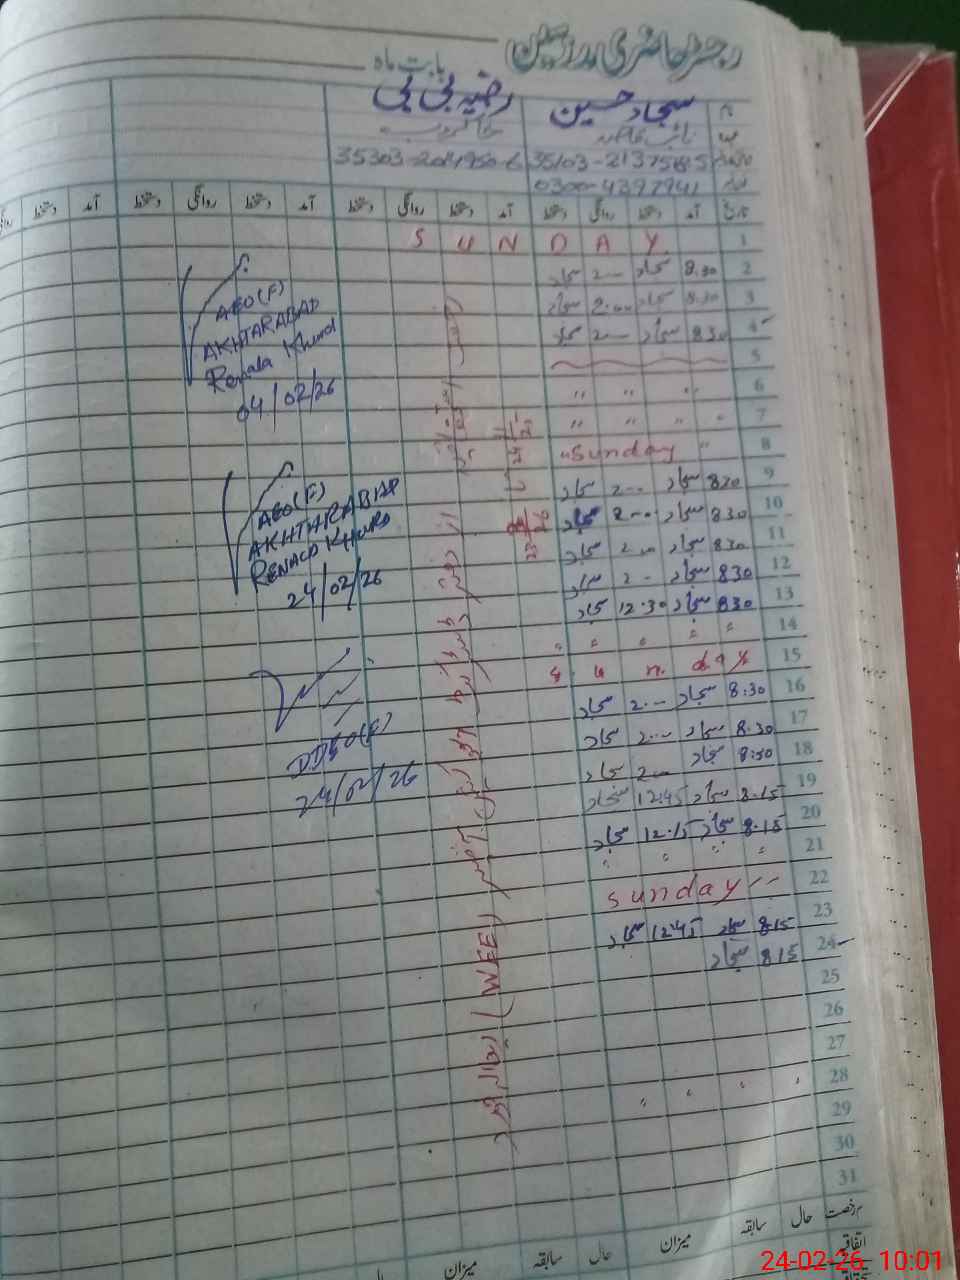 رجسٹر حاضری مدرسین
بابت ماہ
سجاد حسین رضیہ بی بی
نائب قاصد خاکروب
35103-2137565-5
0300-4397941
تاریخ آمد دستخط روانگی دستخط آمد دستخط روانگی دستخط آمد دستخط روانگی دستخط آمد دستخط
1 S U N D A Y
2 8.30 سجاد 2-- سجاد
3 8.30 سجاد 2.00 سجاد
4 830 سجاد 2-- سجاد
5
6 " " "
7 " " " "
8 "Sunday "
9 830 سجاد 2-- سجاد
10 830 سجاد 2-00 سجاد
11 830 سجاد 2-00 سجاد
12 830 سجاد 2-- سجاد
13 830 سجاد 12.30 سجاد
14 " " " " "
15 S u n. day
16 8:30 سجاد 2-- سجاد
17 8.30 سجاد 2-- سجاد
18 8:30 سجاد 2-00 سجاد
19 8.15 سجاد 12.45 سجاد
20 8.15 سجاد 12.15 سجاد
21 " " " "
22 Sunday --
23 8.15 سجاد 12.45 سجاد
24 815 سجاد
25
26
27
28 " " " "
29
30
31
AEO(F)
AKHTARABAD
Renala Khurd
04/02/26
AEO(F)
AKHTARABAD
RENALA KHURD
24/02/26
DDEO(F)
24/02/26
(WEE)
رخصت حال سابقہ میزان حال سابقہ میزان
اتفاقیہ
24-02-26 10:01